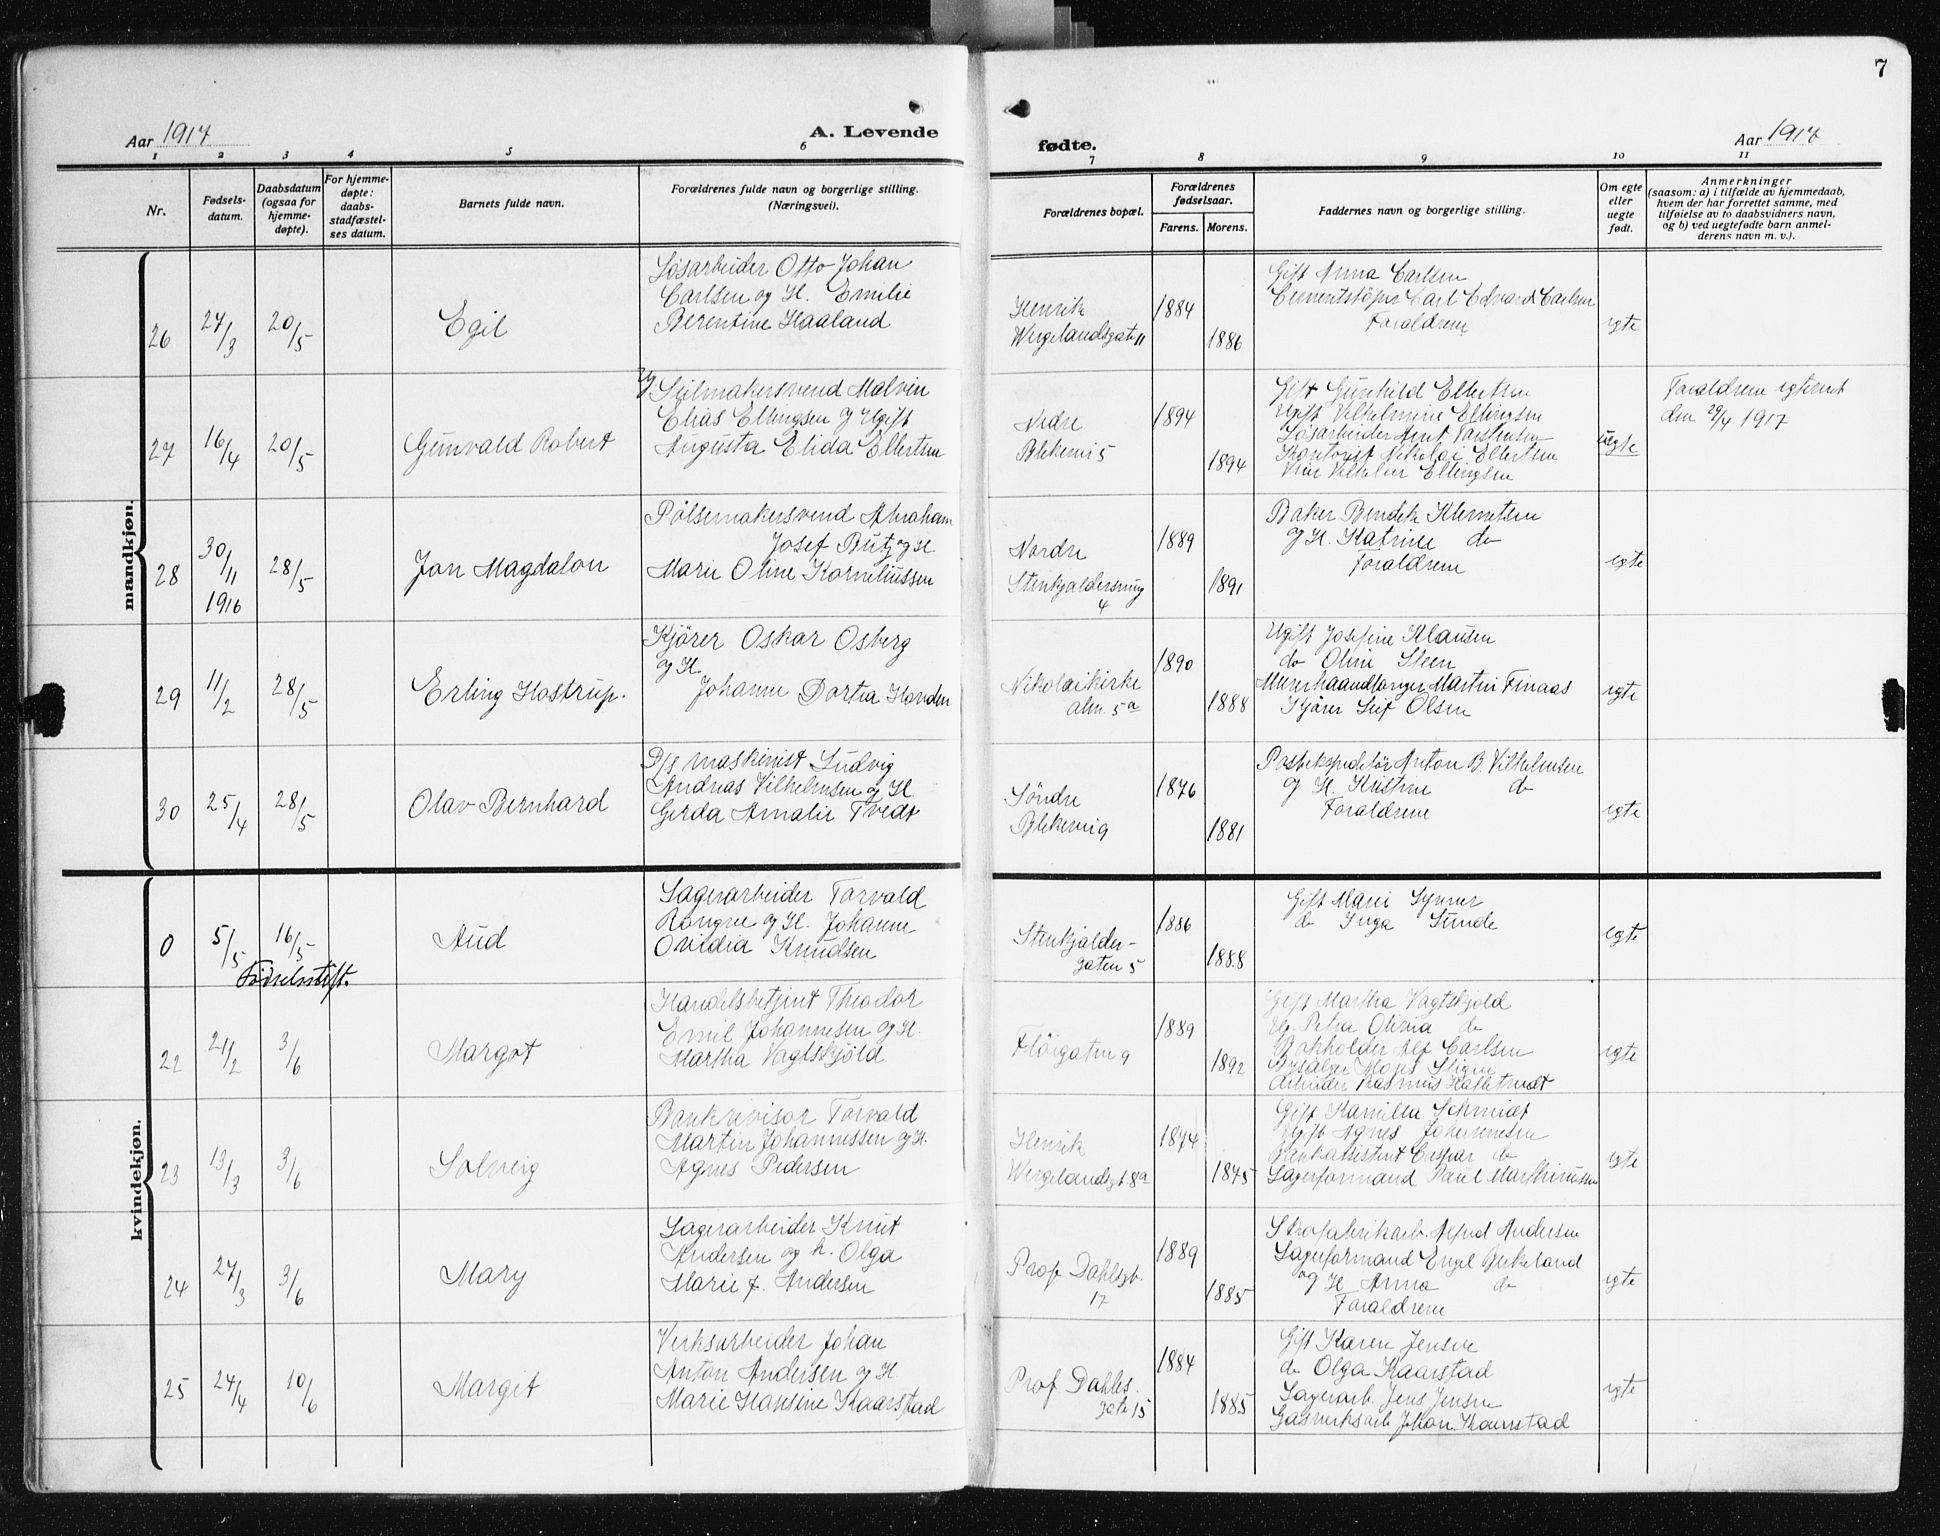 7
Aar 1917
A. Levende
fødte.
Aar 1917
1 2 3 4 5 6 7 8 9 10 11
Nr.
Fødsels-
datum.
Daabsdatum
(ogsaa for
hjemme-
døpte).
For hjemme-
døpte:
daabs-
stadfæstel-
ses datum.
Barnets fulde navn.
Forældrenes fulde navn og borgerlige stilling.
(Næringsvei).
Forældrenes bopæl.
Forældrenes
fødselsaar.
Farens. Morens.
Faddernes navn og borgerlige stilling.
Om egte
eller
uegte
født.
Anmerkninger
(saasom: a) i tilfælde av hjemmedaab,
hvem der har forrettet samme, med
tilføielse av to daabsvidners navn,
og b) ved uegtefødte barn anmel-
derens navn m. v.).
mandkjøn.
26
27/3
20/5
Egil
Løsarbeider Otto Johan
Carlsen og H. Emilie
Berentine Haaland
Henrik
Wergelandsgate 11
1884
1886
Gift Anna Carlsen
Cementstøper Carl Edvard Carlsen
Forældrene
egte
27
16/4
20/5
Gunvald Robert
Ug. Seilmakersvend Malvin
Elias Ellingsen og Ugift
Augusta Elida Ellertsen
Nedre
Blekevei 5
1894
1894
Gift Gunhild Ellertsen
Ugift Vilhelmine Ellingsen
Løsarbeider Arnt Torstensen
Kontorist Nikolai Ellertsen
Vilhelm Ellingsen
uegte
Forældrene egteviet
den 29/4 1917
28
30/11
1916
28/5
Jon Magdalon
Pølsemakersvend Abraham
Josef Butz og H.
Marie Oline Korneliussen
Nordre
Stenkjaldersmug
4
1889
1891
Baker Bendik Klemetsen
og H. Katrine do
Forældrene
egte
29
11/2
28/5
Erling Hostrup.
Kjører Oskar Osberg
og H.
Johanne Dortea Handen
Nikolaikirke
alm. 5a
1890
1888
Ugift Josefine Klausen
do Oline Steen
Murerhaandlanger Martin Finaas
Kjører Leif Olsen
egte
30
25/4
28/5
Olav Bernhard
D/s maskinist Ludvig
Andreas Vilhelmsen og H.
Gerda Amalie Tvedt
Søndre
Blekevei 9
1876
1881
Postekspeditør Anton B. Vilhelmsen
og H. Kristine do
Forældrene
egte
kvindekjøn.
0
5/5
16/5
Fødselsstift.
Aud
Lagerarbeider Torvald
Rongve og H. Johanne
Ovidia Knudsen
Stenkjalder-
gaten 5
1886
1888
Gift Marie
do Inga Sunde
egte
22
21/2
3/6
Margot
Handelsbetjent Theodor
Emil Johannesen og H.
Martha Vagtskjold
Fløigaten 9
1889
1892
Gift Martha Vagtskjold
Ug. Petra Olivia do
Bokholder Alf Carlsen
Bysælger Mons
Arbeider Rasmus
egte
23
13/3
3/6
Solveig
Bankrevisor Torvald
Martin Johannessen og H.
Agnes Pedersen
Henrik
Wergelandsgt 8a
1874
1875
Gift Kamilla Schmidt
Ugift Agnes Johannesen
Bankassistent Caspar do
Lagerformand Paul Marthinussen
egte
24
27/3
3/6
Mary
Lagerarbeider Knut
Andersen og h. Olga
Marie f. Andersen
Prof Dahlsgt.
17
1889
1885
Alfred Andersen
Lagerformand Engel Birkeland
og H Anna do
Forældrene
egte
25
24/4
10/6
Margit
Verksarbeider Johan
Anton Andersen og H
Marie Hansine Kaarstad
Prof. Dahls.
gate 15
1884
1885
Gift Karen Jensen
do Olga Kaarstad
Lagerarb. Jens Jensen
Gasverksarb Johan Kaarstad
egte